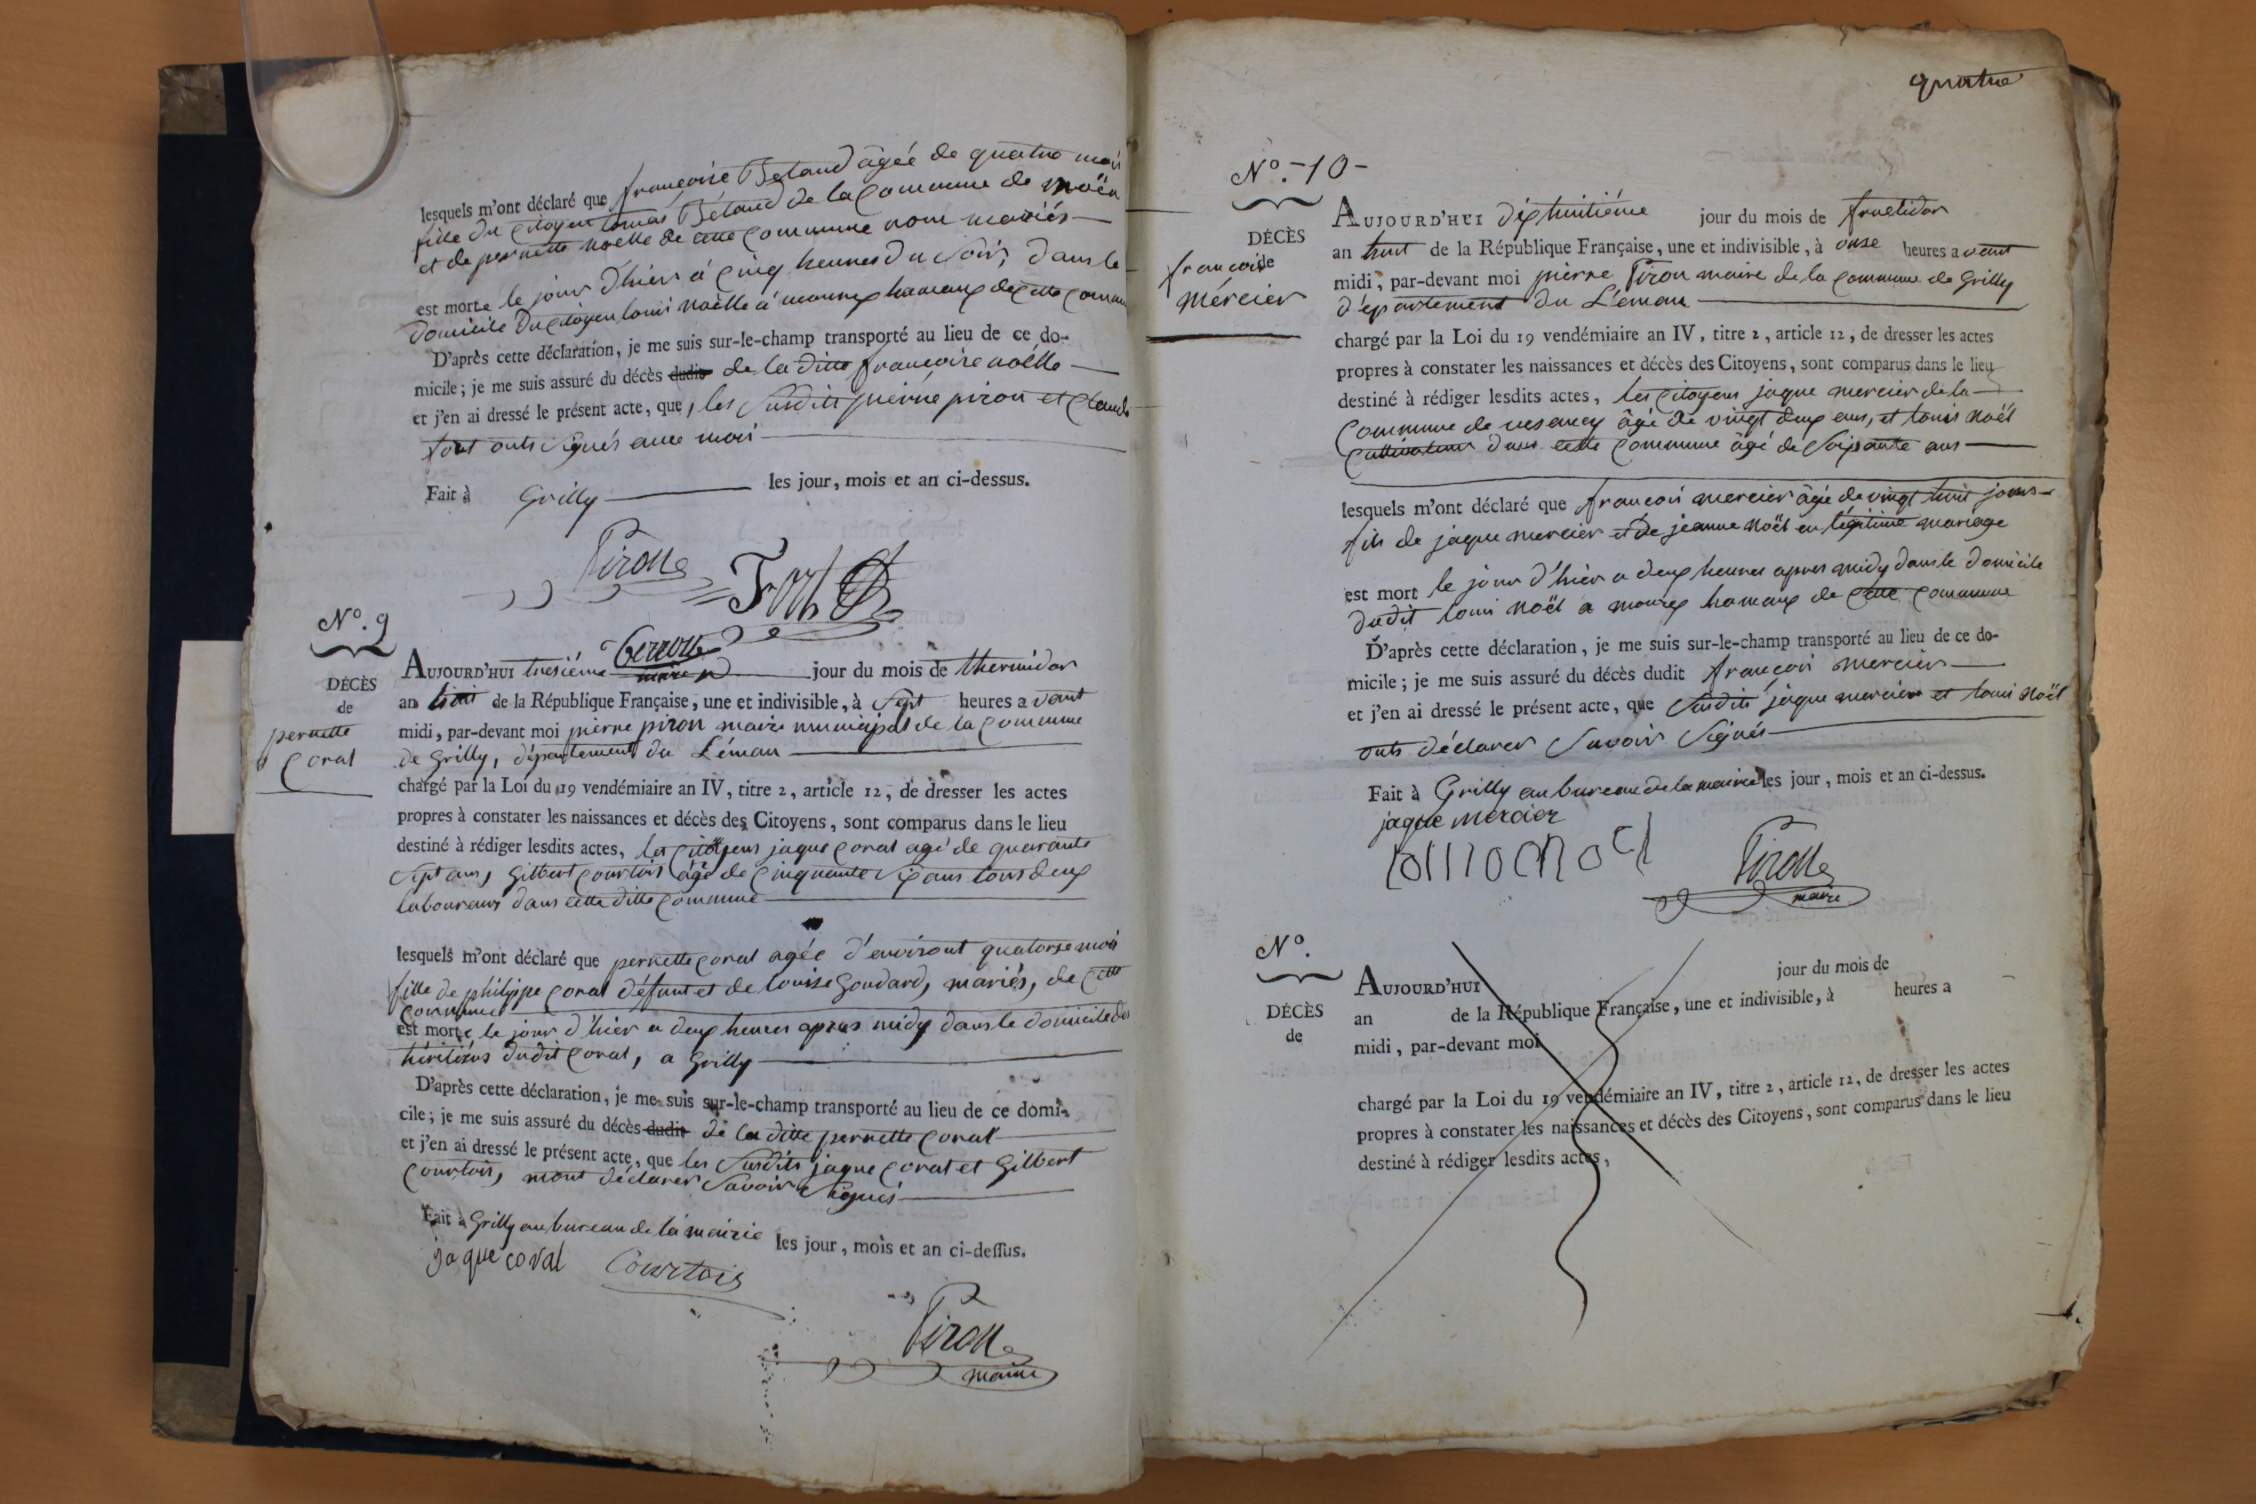 lesquels m'ont déclaré que françoise Bétand âgée de quatre mois
fille du Citoyen tomas Bétand de la Commune de
et de pernette noelle de cette Commune nom mariés
est morte le jour d'hier à cinq heures du Soir, dans le
domicile du citoyen louis noëlle à mourex hameaux de cette Commune
D'après cette déclaration, je me suis sur-le-champ transporté au lieu de ce do-
micile; je me suis assuré du décès dudit de la ditte françoise noëlle
et j'en ai dressé le présent acte, que, les Susdits pierre piron et Claude
fort onts Signés avec moi
Fait à Grilly les jour, mois et an ci-dessus.
Piron Fort
No. 9
DÉCÈS
de
pernette
Coral
AUJOURD'HUI tresiéme jour du mois de thermidor
maire
an huit de la République Française, une et indivisible, à Sept heures avant
midi, par-devant moi pierre piron maire municipal de la Commune
de Grilly, département du Léman
chargé par la Loi du 19 vendémiaire an IV, titre 2, article 12, de dresser les actes
propres à constater les naissances et décès des Citoyens, sont comparus dans le lieu
destiné à rédiger lesdits actes, les Citoyens jaque Coral agé de quarante
Sept ans, Gilbert Courtois âgé de Cinquante Six ans tous deux
laboureurs dans cette ditte Commune
lesquels m'ont déclaré que pernette Coral agée d'environt quatorse mois
fille de philippe Coral défunt et de louise Goudard, mariés, de Cette
Commune
est morte le jour d'hier a deux heures apres midy dans le domicile des
héritiérs dudit Coral, a Grilly
D'après cette déclaration, je me suis sur-le-champ transporté au lieu de ce domi-
cile; je me suis assuré du décès dudit de la ditte pernette Coral
et j'en ai dressé le présent acte, que les Susdits jaque Coral et Gilbert
Courtois, mont déclarer Savoir Signés
Fait à Grilly au bureau de la mairie les jour, mois et an ci-dessus.
jaque coral Courtois
Piron
maire
quatre
No. -10-
DÉCÈS
de
françois
mércier
AUJOURD'HUI dixhuitiéme jour du mois de fructidor
an huit de la République Française, une et indivisible, à onse heures avant
midi, par-devant moi pierre Piron maire de la Commune de Grilly
département du Léman
chargé par la Loi du 19 vendémiaire an IV, titre 2, article 12, de dresser les actes
propres à constater les naissances et décès des Citoyens, sont comparus dans le lieu
destiné à rédiger lesdits actes, les Citoyens jaque mercier de la
Commune de vesancy âgé de vingt deux ans, et louis Noël
Cultivateur dans cette Commune âgé de Soixante ans
lesquels m'ont déclaré que françois mercier âgé de vingt huit jours
fils de jaque mercier et de jeanne Noël en légitime mariage
est mort le jour d'hier a deux heures apres midy dans le domicile
dudit louis Noël a mourex hameaux de Cette Commune
D'après cette déclaration, je me suis sur-le-champ transporté au lieu de ce do-
micile; je me suis assuré du décès dudit françois mercier
et j'en ai dressé le présent acte, que Susdits jaque mercier et louis Noël
onts déclarer Savoir Signés
Fait à Grilly au bureau de la mairie les jour, mois et an ci-dessus.
jaque mercier
Piron
maire
No.
DÉCÈS
de
AUJOURD'HUI jour du mois de
an de la République Française, une et indivisible, à heures a
midi, par-devant moi
chargé par la Loi du 19 vendémiaire an IV, titre 2, article 12, de dresser les actes
propres à constater les naissances et décès des Citoyens, sont comparus dans le lieu
destiné à rédiger lesdits actes,